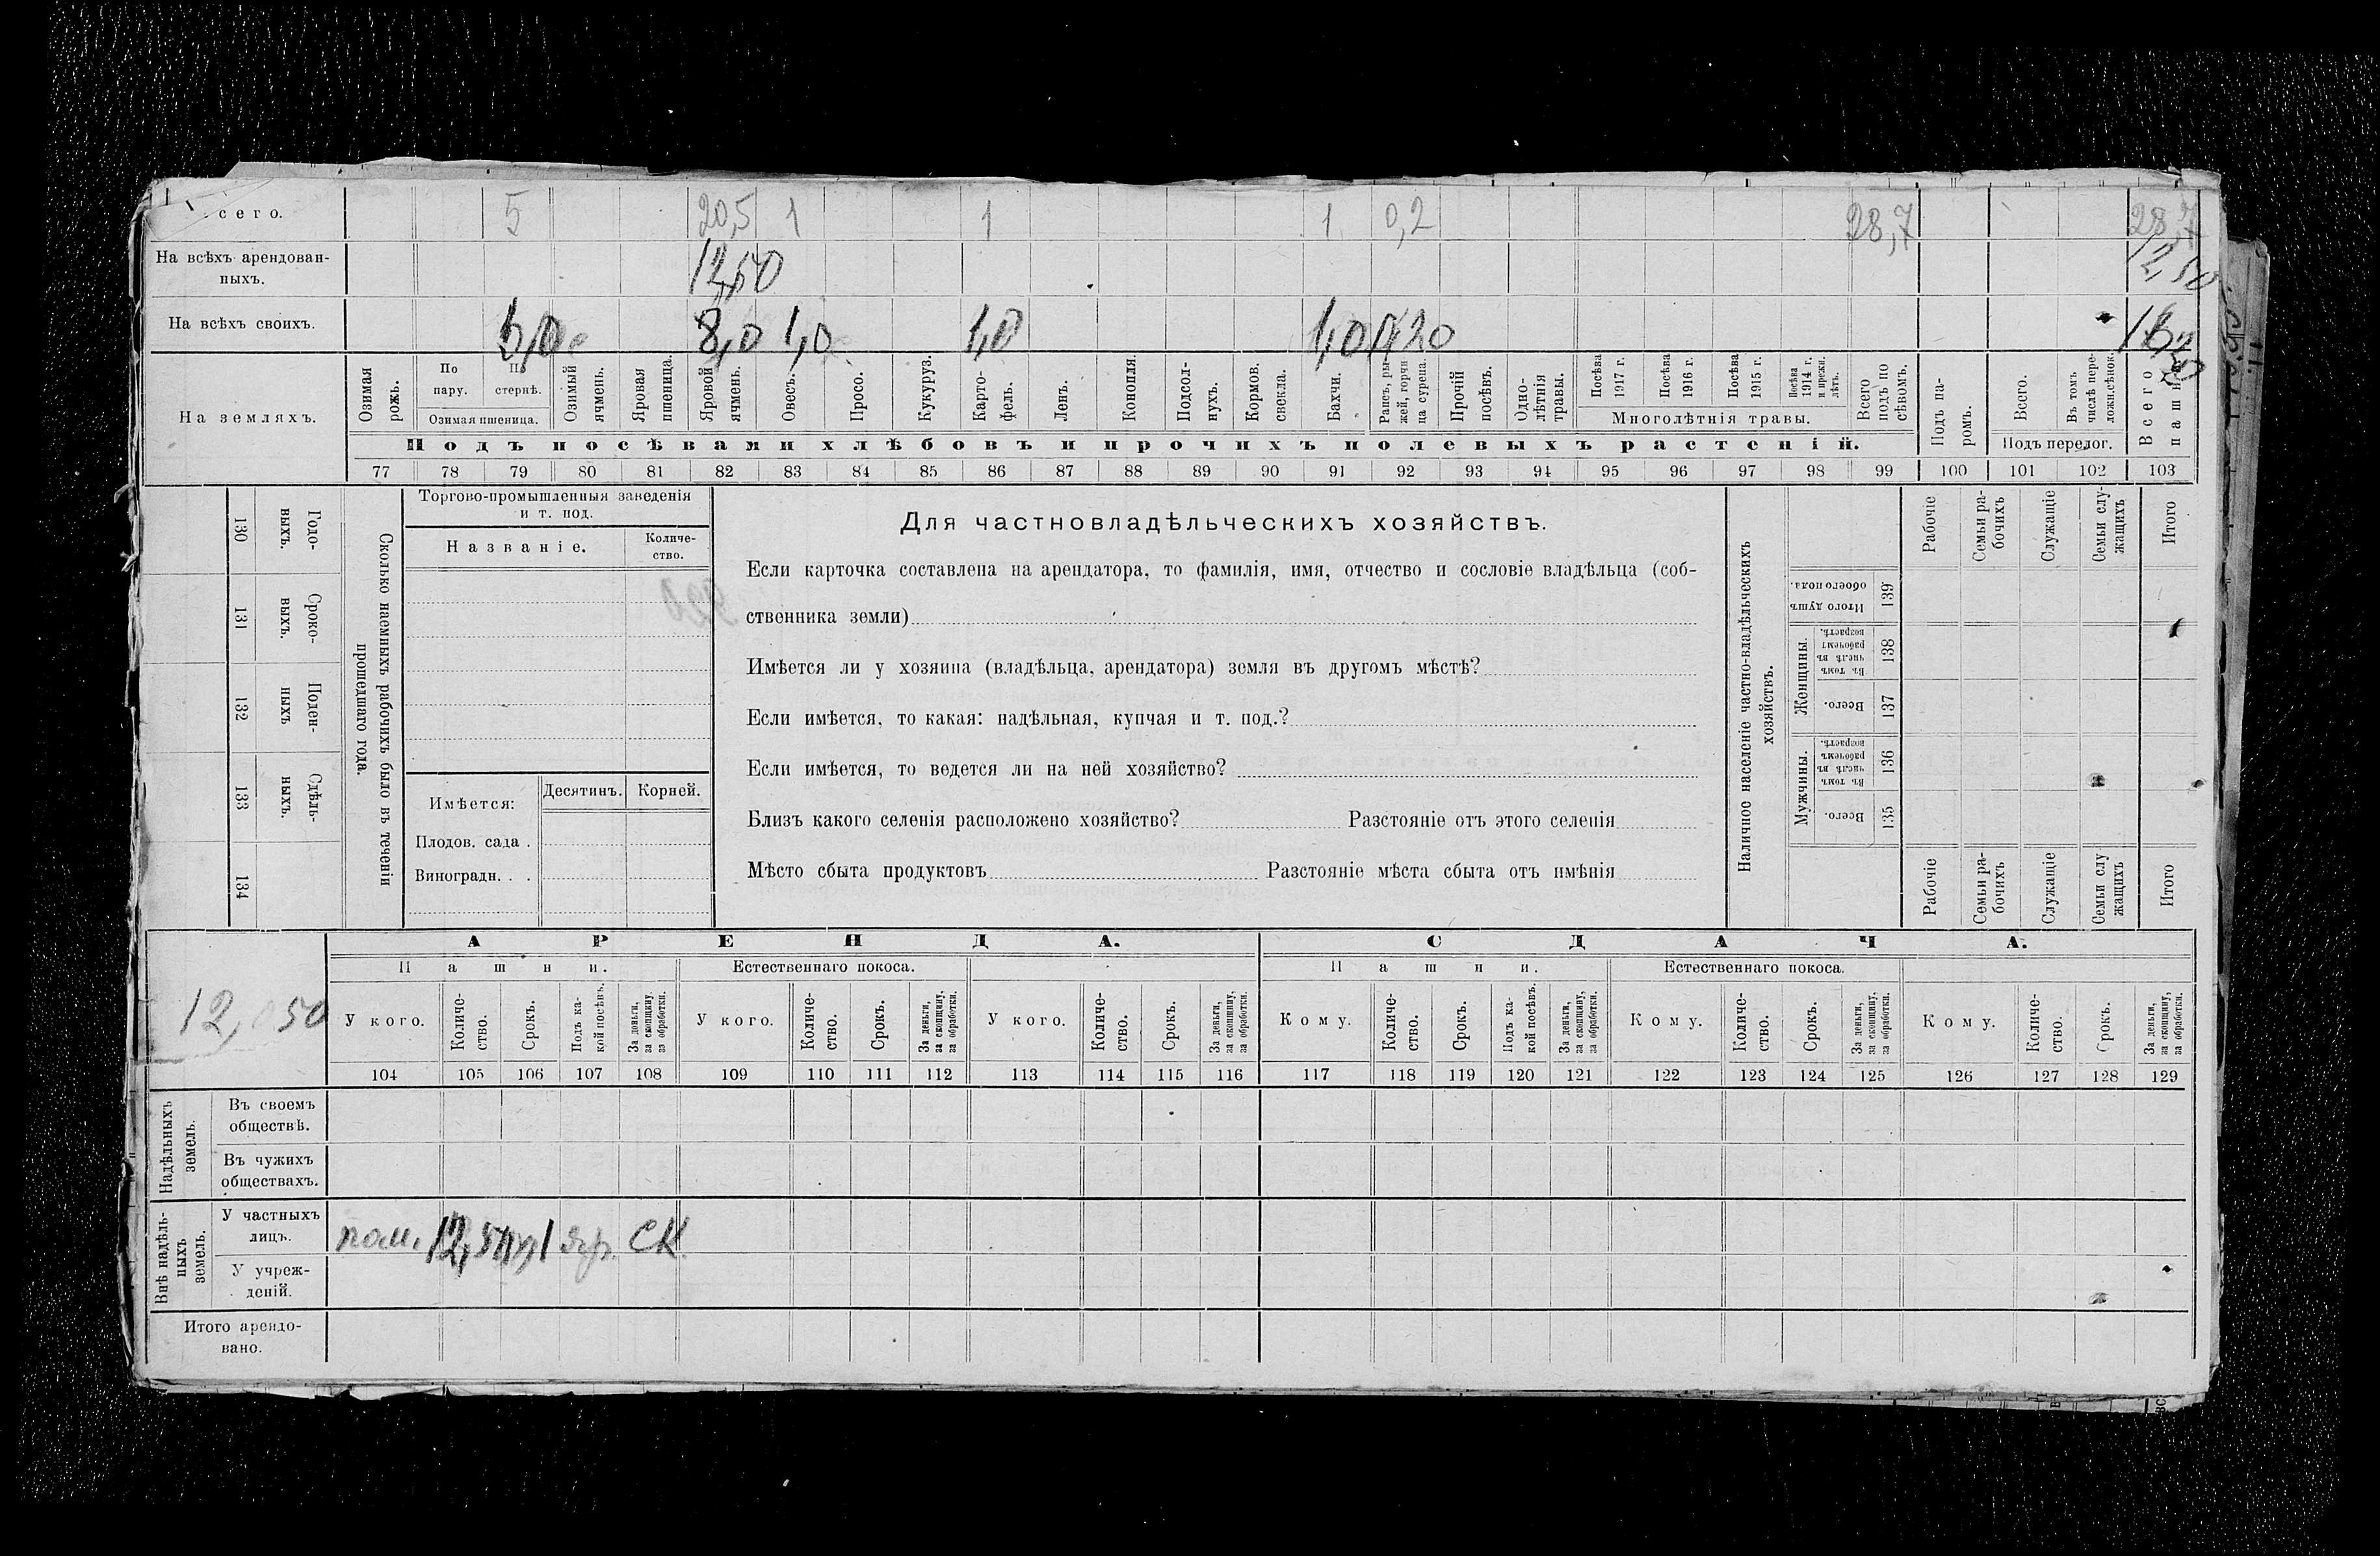 сего. 5 20,5 1 1 1 0,2 28,7 28,7
На всѣхъ арендован-
ныхъ. 12,50 12,50
На всѣхъ своихъ. 5,0 8,0 1,0 1,0 1,0 0,20 16,20
На земляхъ.
Озимая рожь.
По пару.
По стернѣ.
Озимая пшеница.
Озимый ячмень.
Яровая пшеница.
Яровой ячмень.
Овесъ.
Просо.
Кукуруз.
Карто-
фель.
Ленъ.
Конопля
Подсол-
нухъ.
Кормов.
свекла.
Бахчи.
Рапсъ, ры
жей, горчи
ца сурепа.
Прочій
посѣвъ.
Одно-
лѣтнія
травы.
Посѣва
1917 г.
Посѣва
1916 г.
Посѣва
1915 г.
Посѣва
1914 г.
и прежн.
лѣтъ.
Многолѣтнія травы.
Всего
подъ по
сѣвомъ.
Подъ па-
ромъ.
Всего.
Въ томъ
числѣ пере-
ложн.сѣнок.
Подъ перелог.
Всего
пашни
Подъ посѣвами хлѣбовъ и прочихъ полевыхъ растеній.
77 78 79 80 81 82 83 84 85 86 87 88 89 90 91 92 93 94 95 96 97 98 99 100 101 102 103
130 Годо-
выхъ.
131 Сроко-
выхъ.
132 Поден-
ныхъ
133 Сдѣль-
ныхъ.
134
Сколько наемныхъ рабочихъ было въ теченіи
прошедшаго года.
Торгово-промышленныя заведенія
и т. под.
Названіе.
Количе-
ство.
Имѣется:
Десятинъ.
Корней.
Плодов. сада .
Виноградн. . .
Для частновладѣльческихъ хозяйствъ.
Если карточка составлена на арендатора, то фамилія, имя, отчество и сословіе владѣльца (соб-
ственника земли)
Имѣется ли у хозяина (владѣльца, арендатора) земля въ другомъ мѣстѣ?
Если имѣется, то какая: надѣльная, купчая и т. под.?
Если имѣется, то ведется ли на ней хозяйство?
Близъ какого селенія расположено хозяйство? Разстояніе отъ этого селенія
Мѣсто сбыта продуктовъ Разстояніе мѣста сбыта отъ имѣнія
Наличное населеніе частно-владѣльческихъ
хозяйствъ.
Рабочіе
Семьи ра-
бочихъ
Служащіе
Семьи слу-
жащихъ
Итого
Итого душъ
обоего пола.
139
Женщины.
Въ томъ
числѣ въ
рабочемъ
возрастѣ.
138
Всего.
137
Мужчины.
Въ томъ
числѣ въ
рабочемъ
возрастѣ.
136
Всего.
135
Рабочіе
Семьи ра-
бочихъ
Служащіе
Семьи слу
жащихъ
Итого
АРЕНДА. СДАЧА.
Пашни. Естественнаго покоса. Пашни. Естественнаго покоса.
12, 50
У кого.
Количе-
ство.
Срокъ.
Подъ ка-
кой посѣвъ.
За деньги,
за скопщину,
за обработки.
У кого.
Количе-
ство.
Срокъ.
За деньги,
за скопщину,
за обработки.
У кого.
Количе-
ство.
Срокъ.
За деньги,
за скопщину,
за обработки.
Кому.
Количе-
ство.
Срокъ.
Подъ ка-
кой посѣвъ.
За деньги,
за скопщину,
за обработки.
Кому.
Количе-
ство.
Срокъ.
За деньги,
за скопщину,
за обработки.
Кому.
Количе-
ство.
Срокъ.
За деньги,
за скопщину,
за обработки.
104 105 106 107 108 109 110 111 112 113 114 115 116 117 118 119 120 121 122 123 124 125 126 127 128 129
Надѣльныхъ
земель.
Въ своемъ
обществѣ.
Въ чужихъ
обществахъ.
Внѣ надѣль-
ныхъ
земель.
У частныхъ
лицъ. пом. 12,50 1 яр. СК.
У учреж-
деній.
Итого арендо-
вано.